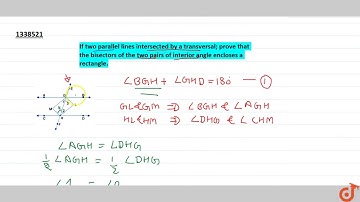 1338521
If two parallel lines intersected by a transversal; prove that
the bisectors of the two pairs of interior angle encloses a
rectangle.
∠BGH + ∠GHD = 180 — ①
GL & GM ⇒ ∠BGH & ∠AGH
HL & HM ⇒ ∠DHG & ∠CHM
∠AGH = ∠DHG
1/2 ∠AGH = 1/2 ∠DHG